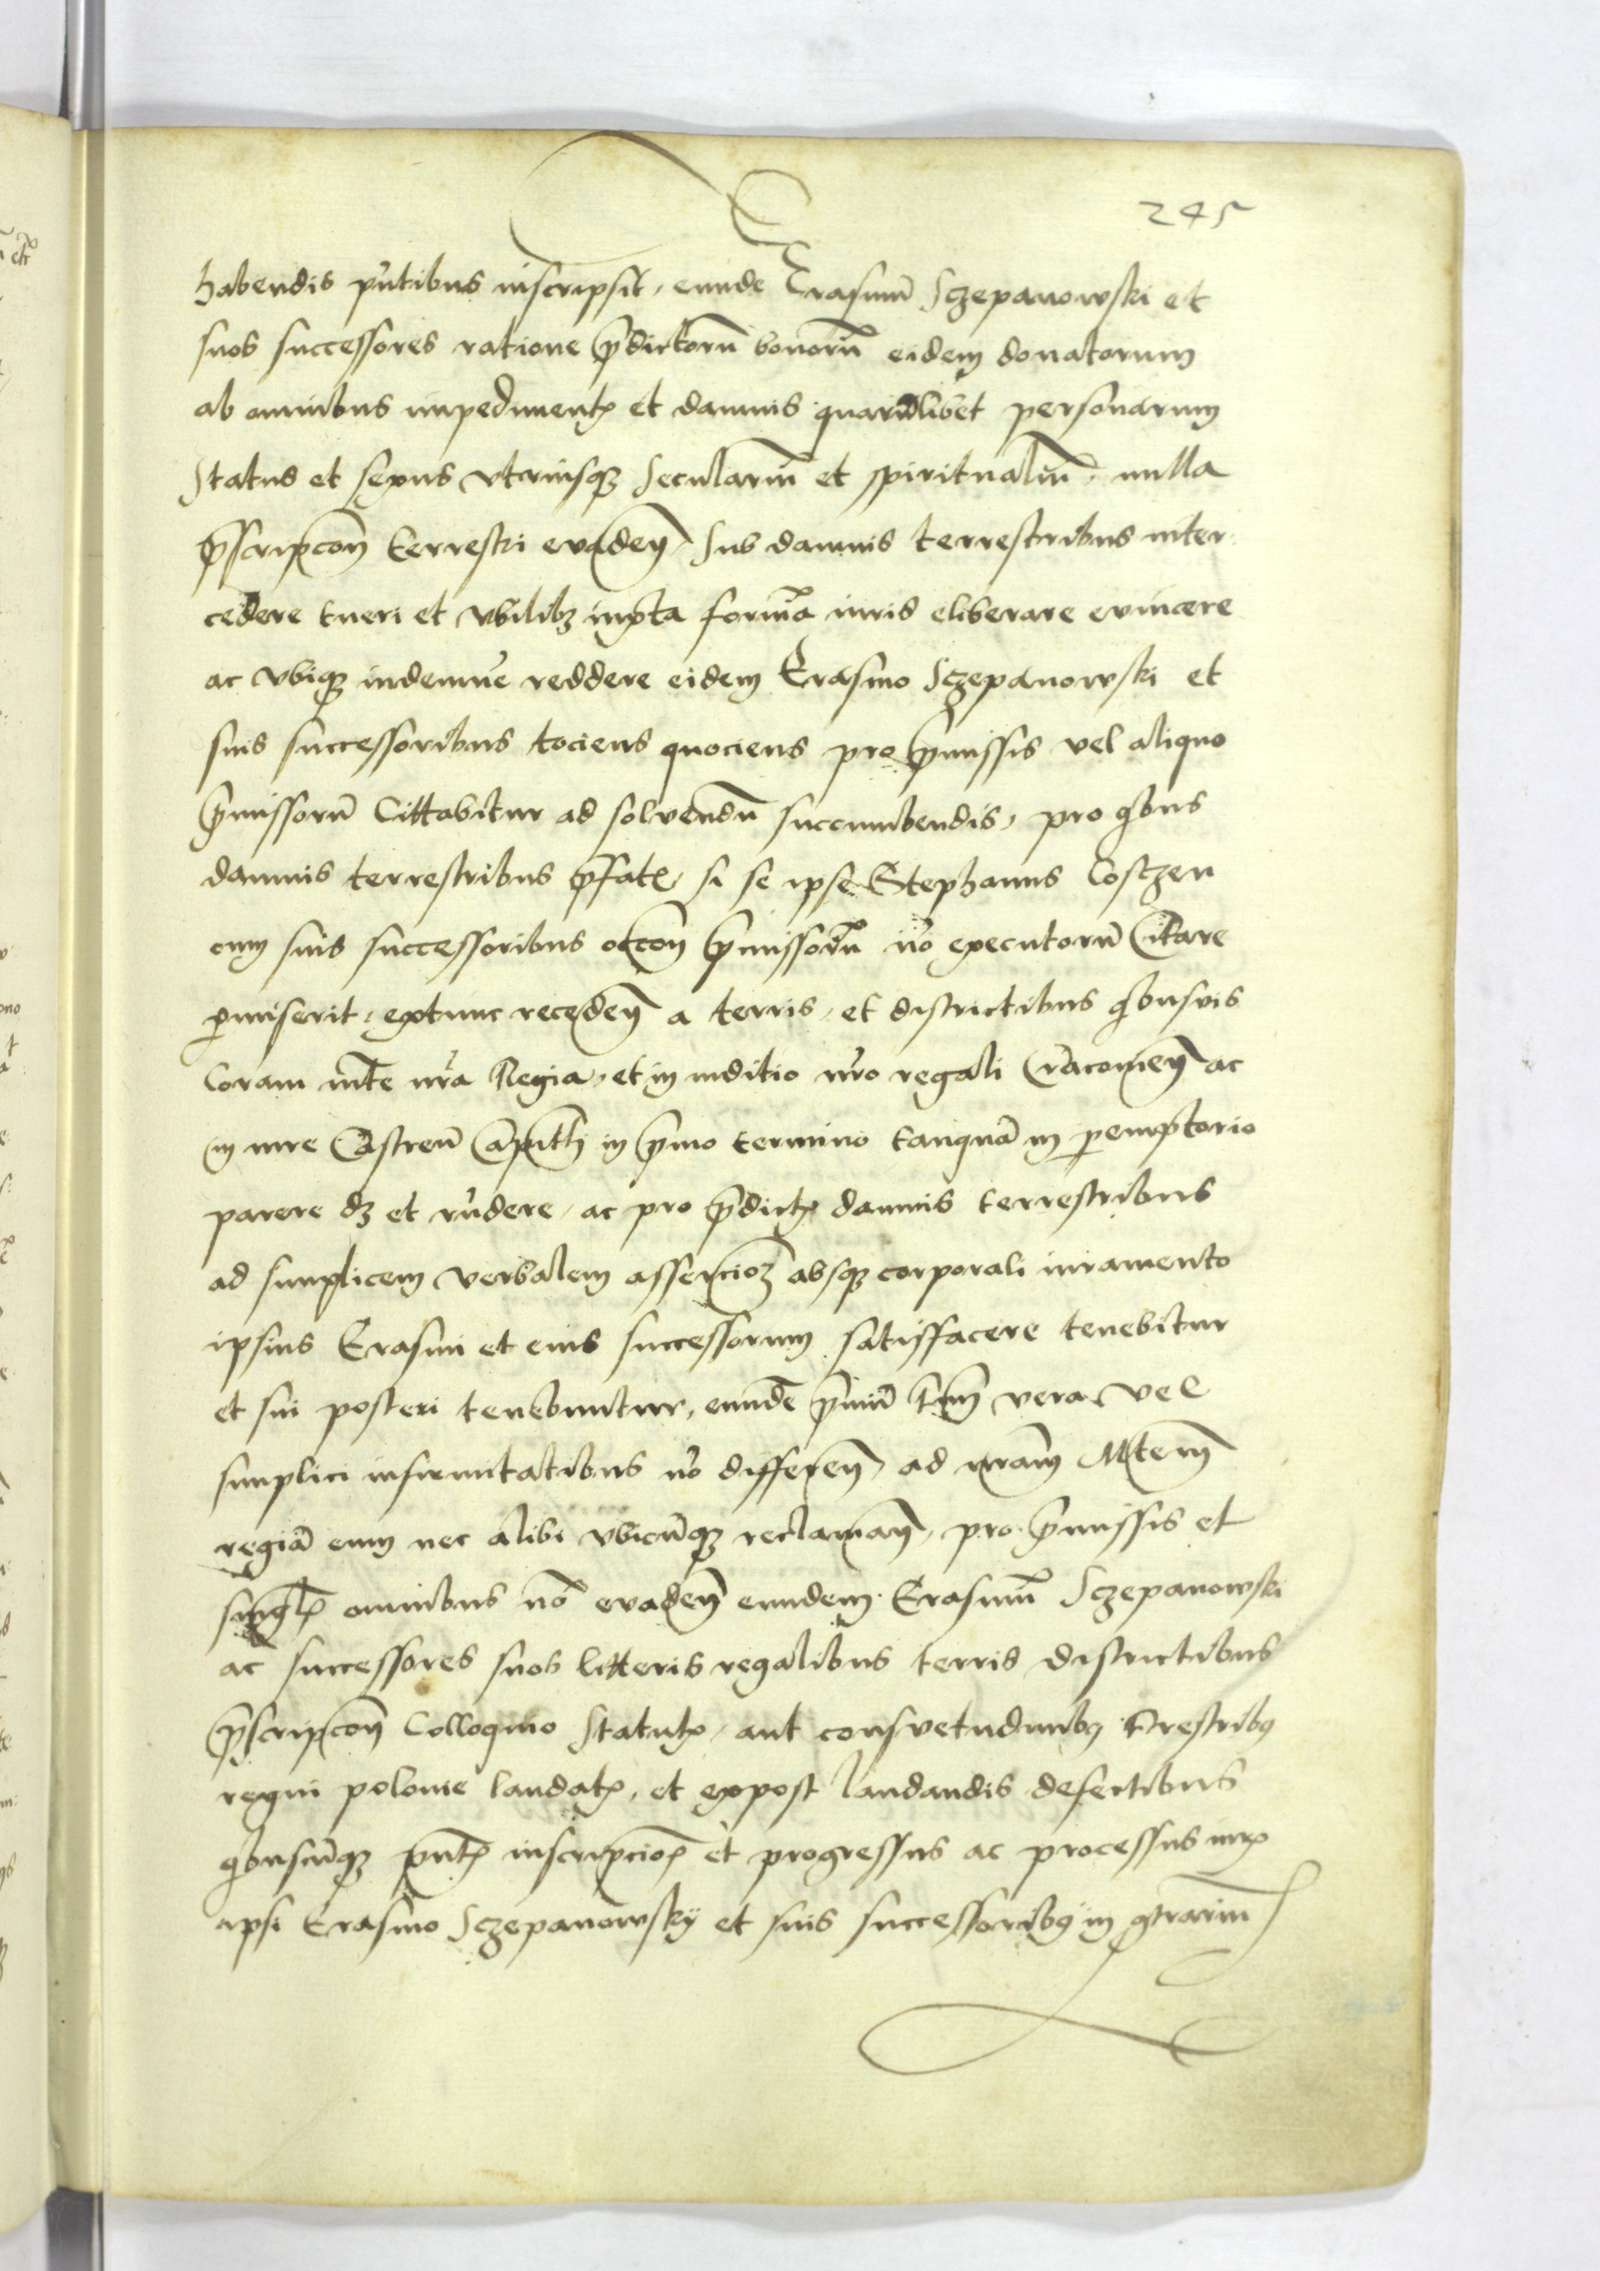 245
habendis pñtibus inscripsit, eundẽ Erasmũ Sczepanowski et
suos successores ratione p̃dictorũ bonorũ eidem donatorum
ab omnibus impedimentꝭ et damnis quarũlibet personarum
Status et sexus vtriusqꝫ Seculariũ et spiritualiũ, nulla
p̃scripcoñ terrestri evadeñ, Sub damnis terrestribus inter
cedere tueri et vbilibꝫ iuxta formã iuris eliberare evincere
ac vbiqꝫ indemnẽ reddere eidem Erasmo Sczepanowski et
suis successoribus tociens quociens pro p̃missis vel aliquo
p̃missorũ Cittabitur ad solvendũ succumbendis, pro qbus
damnis terrestribus p̃fatꝭ, si se ipse Stephanus Coszen
cum suis successoribus occoñ p̃missorũ nõ executorũ Citare
pmiserit, extunc recedeñ a terris, et districtibus qbusvis
Coram mte nrã Regia, et in iuditio nrõ regali Cracovieñ ac
in iure Castreñ ibidem in p̃mo termino tanquã in pemptorio
parere dꝫ et rñdere, ac pro p̃dictꝭ damnis terrestribus
ad simplicem verbalem assercioꝫ absqꝫ corporali iuramento
ipsius Erasmi et eius successorum satisffacere tenebitur
et sui posteri tenebuntur, eundẽ p̃mũ tm̃ vera vel
simplici infirmitatibus nõ differeñ, ad nrãm Mtem̃
regiã eum nec alibi vbicũqꝫ reclamañ, pro p̃missis et
singlꝭ omnibus nõ evadeñ eundem Erasmũ Sczepanowski
ac successores suos litteris regalibus terris districtibus
p̃scripcoñ Colloquio Statutꝭ, aut consvetudinibꝫ trestribꝫ
regni polonie laudatꝭ, et expost laudandis defectibus
qbuscũqꝫ pñtꝭ inscripcioꝭ et progressus ac processus iurꝭ
ipsi Erasmo Sczepanowskÿ et suis successoribꝫ in qtrariũ